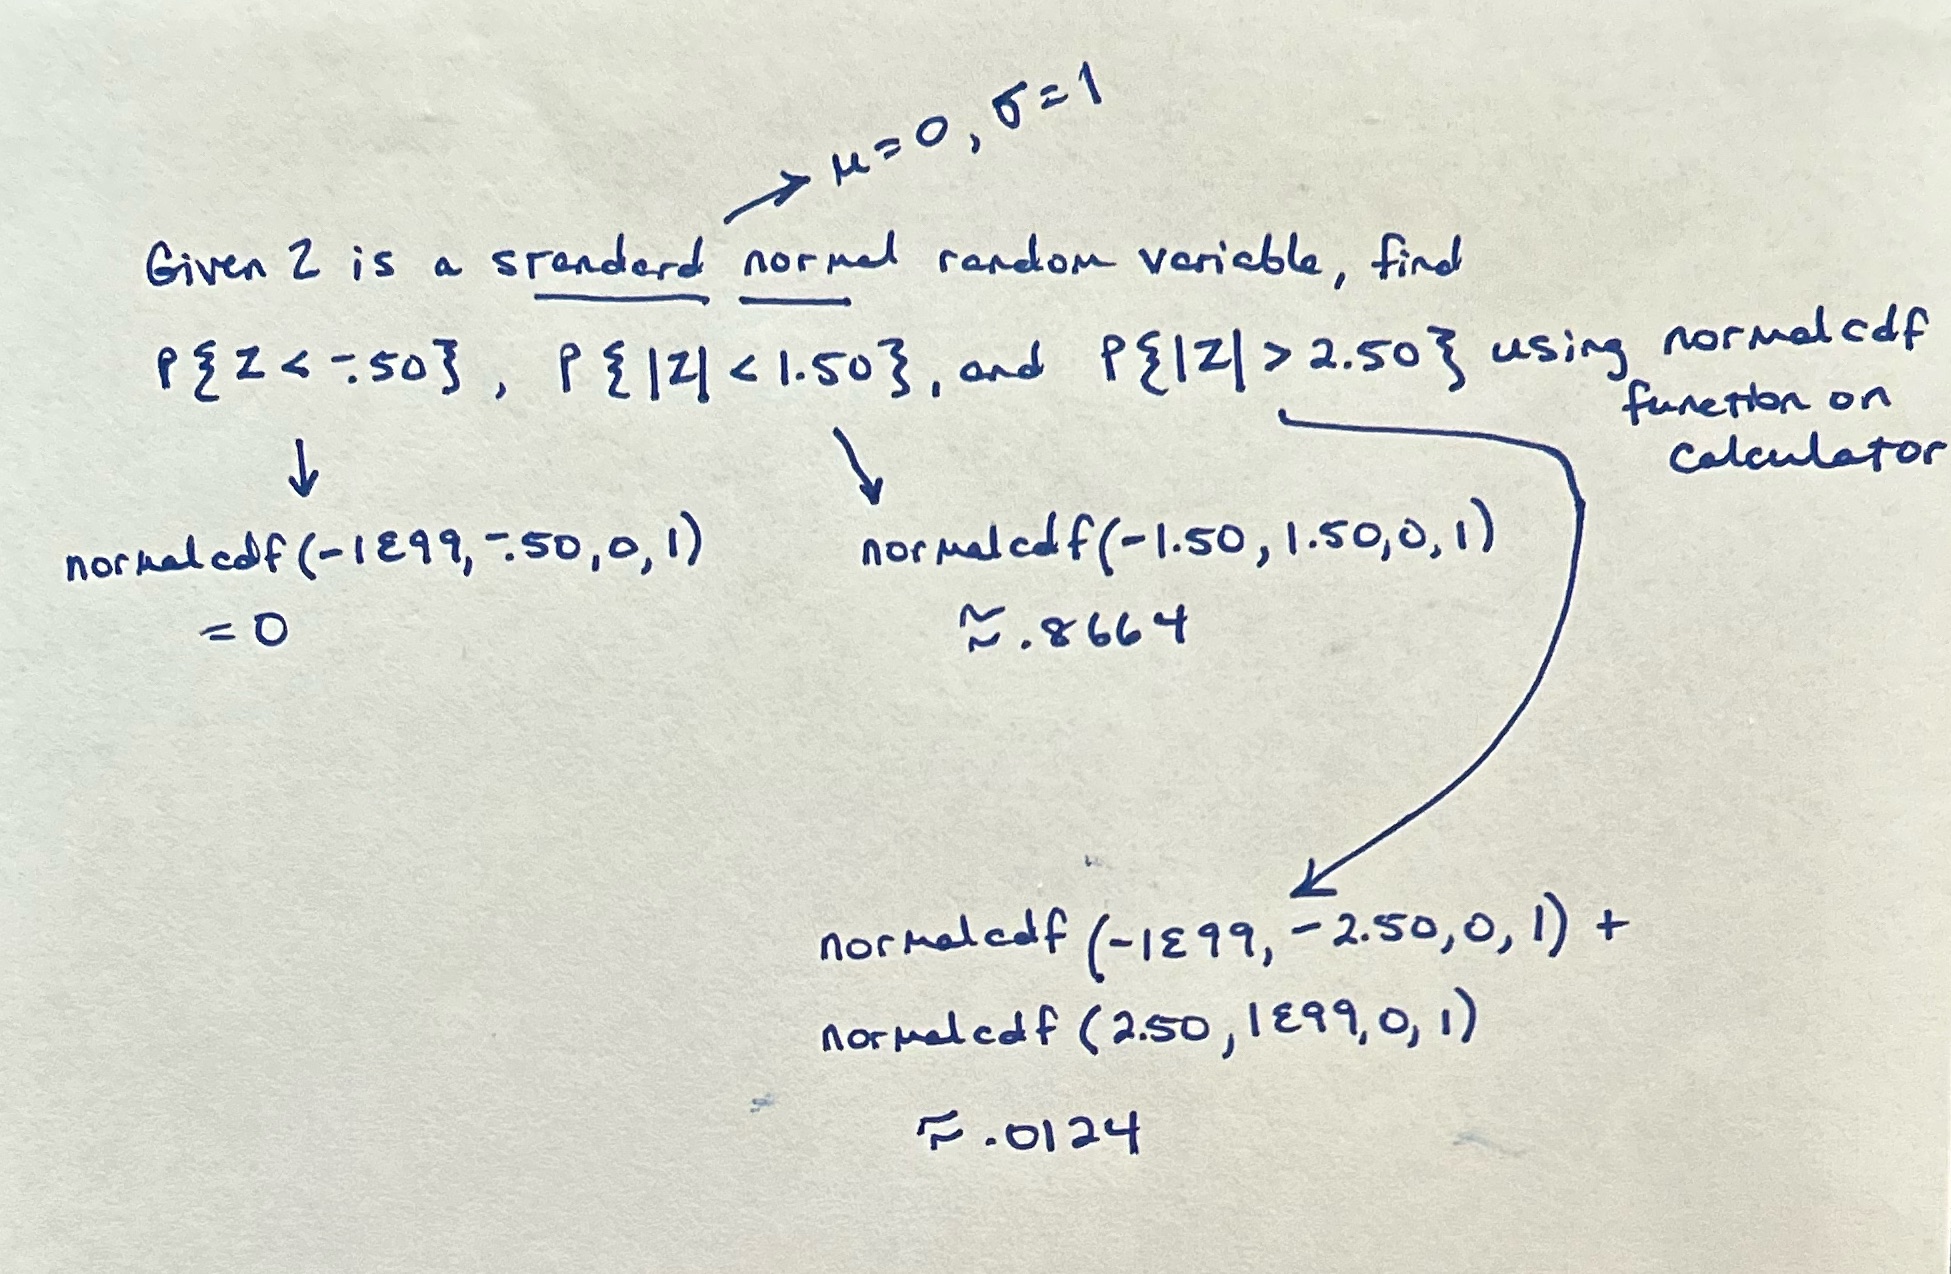 → μ=0, σ=1
Given Z is a standard normal random variable, find
P{Z < -.50}, P{|Z| < 1.50}, and P{|Z| > 2.50} using normalcdf
function on
calculator
↓
normalcdf(-1E99, -.50, 0, 1)
= 0
normalcdf(-1.50, 1.50, 0, 1)
≈ .8664
normalcdf (-1E99, -2.50, 0, 1) +
normalcdf (2.50, 1E99, 0, 1)
≈ .0124